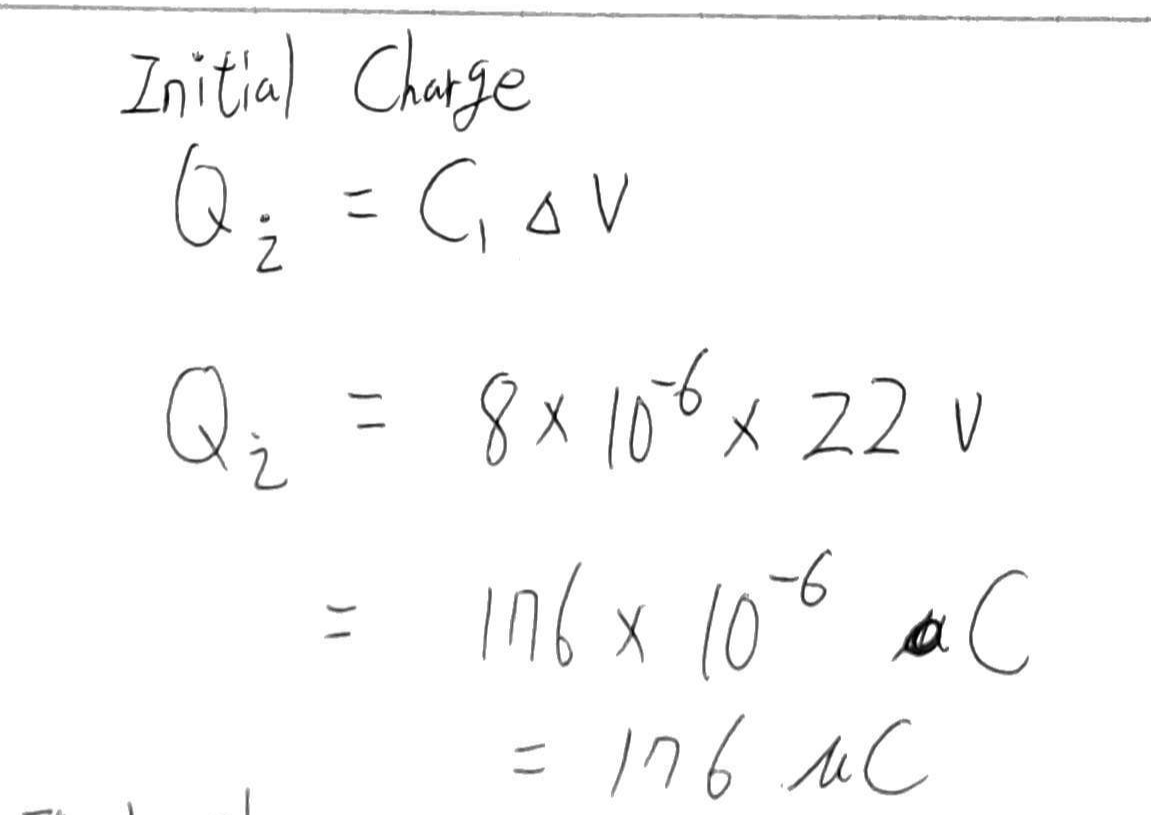 Initial Charge
Qi = C₁ Δ V
Qi = 8 × 10⁻⁶ × 22 V
= 176 × 10⁻⁶ C
= 176 μC